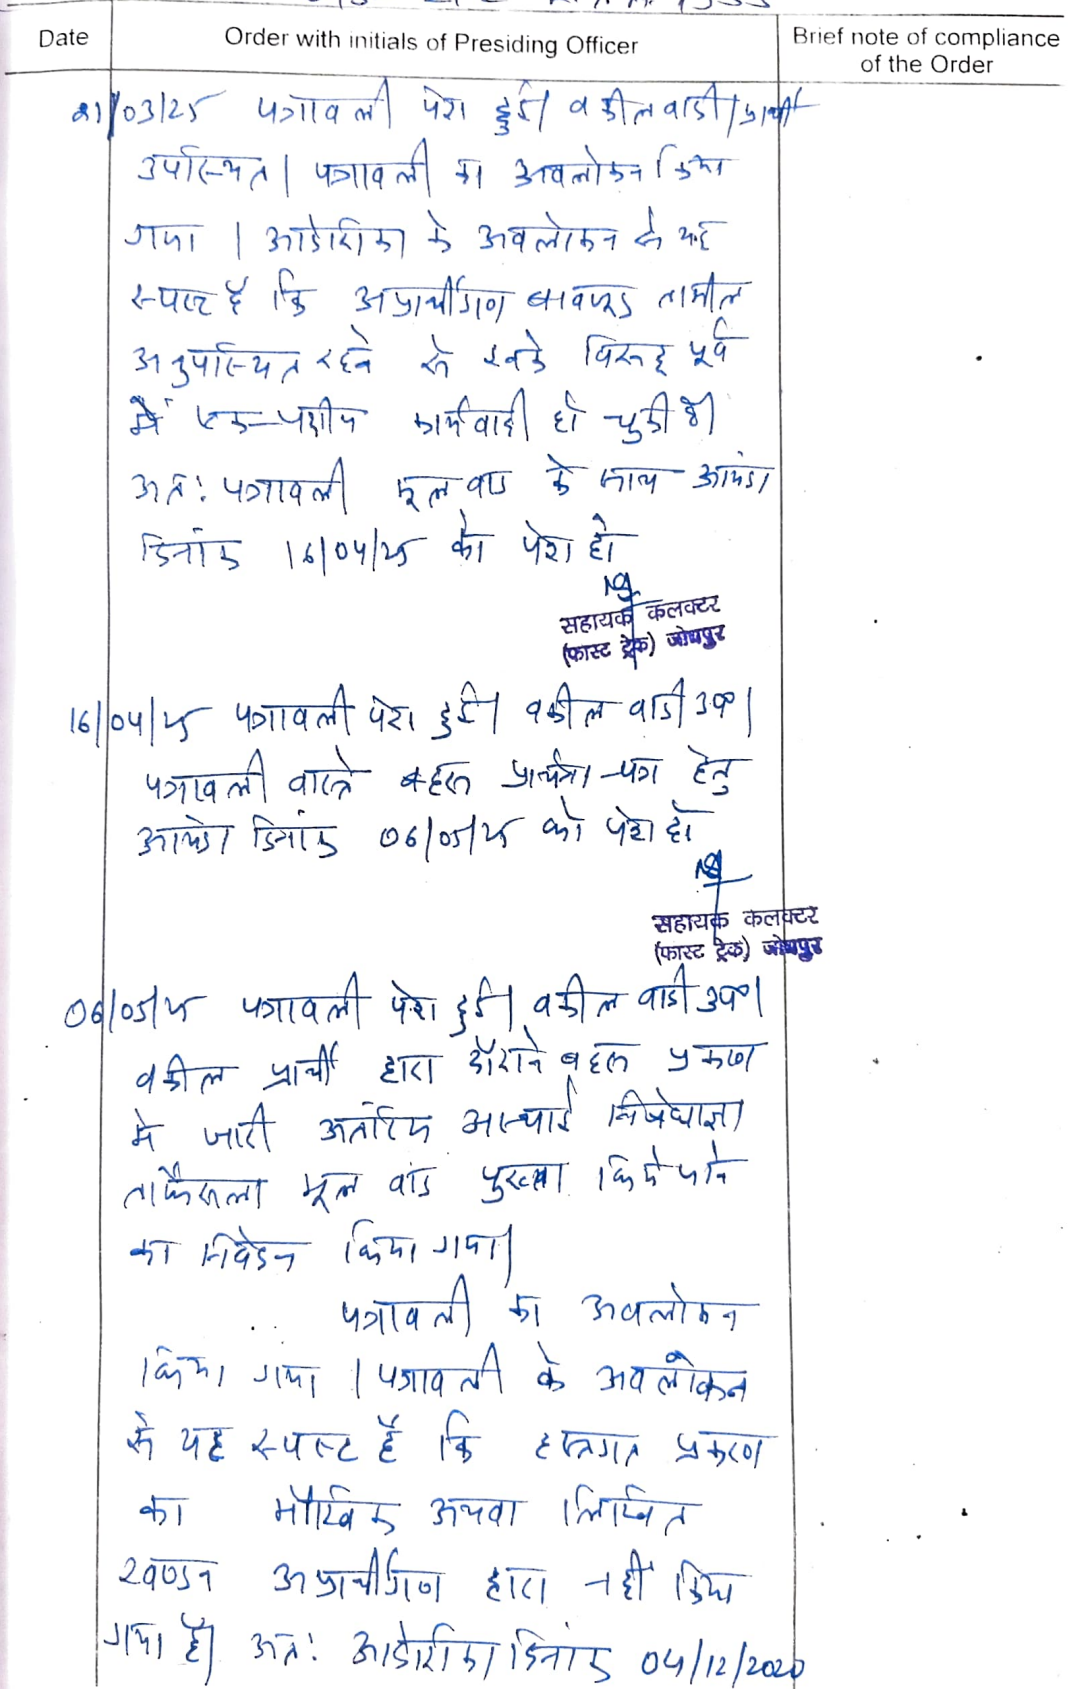 Date
Order with initials of Presiding Officer
Brief note of compliance
of the Order
21/03/25 पत्रावली पेश हुई। वकील वादी/प्रार्थी
उपस्थित। पत्रावली का अवलोकन किया
गया। आदेशिका के अवलोकन से यह
स्पष्ट है कि अप्रार्थीगण बावजूद तामील
अनुपस्थित रहने से इनके विरूद्ध पूर्व
में एक-पक्षीय कार्यवाही हो चुकी है।
अतः पत्रावली मूल वाद के साथ आयंदा
दिनांक 16/04/25 को पेश हो
सहायक कलक्टर
(फास्ट ट्रेक) जोधपुर
16/04/25 पत्रावली पेश हुई। वकील वादी उप०।
पत्रावली वास्ते बहस प्रार्थना-पत्र हेतु
आयंदा दिनांक 06/05/25 को पेश हो
सहायक कलक्टर
(फास्ट ट्रेक) जोधपुर
06/05/25 पत्रावली पेश हुई। वकील वादी उप०।
वकील प्रार्थी द्वारा दौराने बहस प्रकरण
में जारी अंतरिम अस्थाई निषेधाज्ञा
ताफैसला मूल वाद पुख्ता किये जाने
का निवेदन किया गया।
पत्रावली का अवलोकन
किया गया। पत्रावली के अवलोकन
से यह स्पष्ट है कि हस्तगत प्रकरण
का मौखिक अथवा लिखित
खण्डन अप्रार्थीगण द्वारा नहीं किया
गया है। अतः आदेशिका दिनांक 04/12/2020